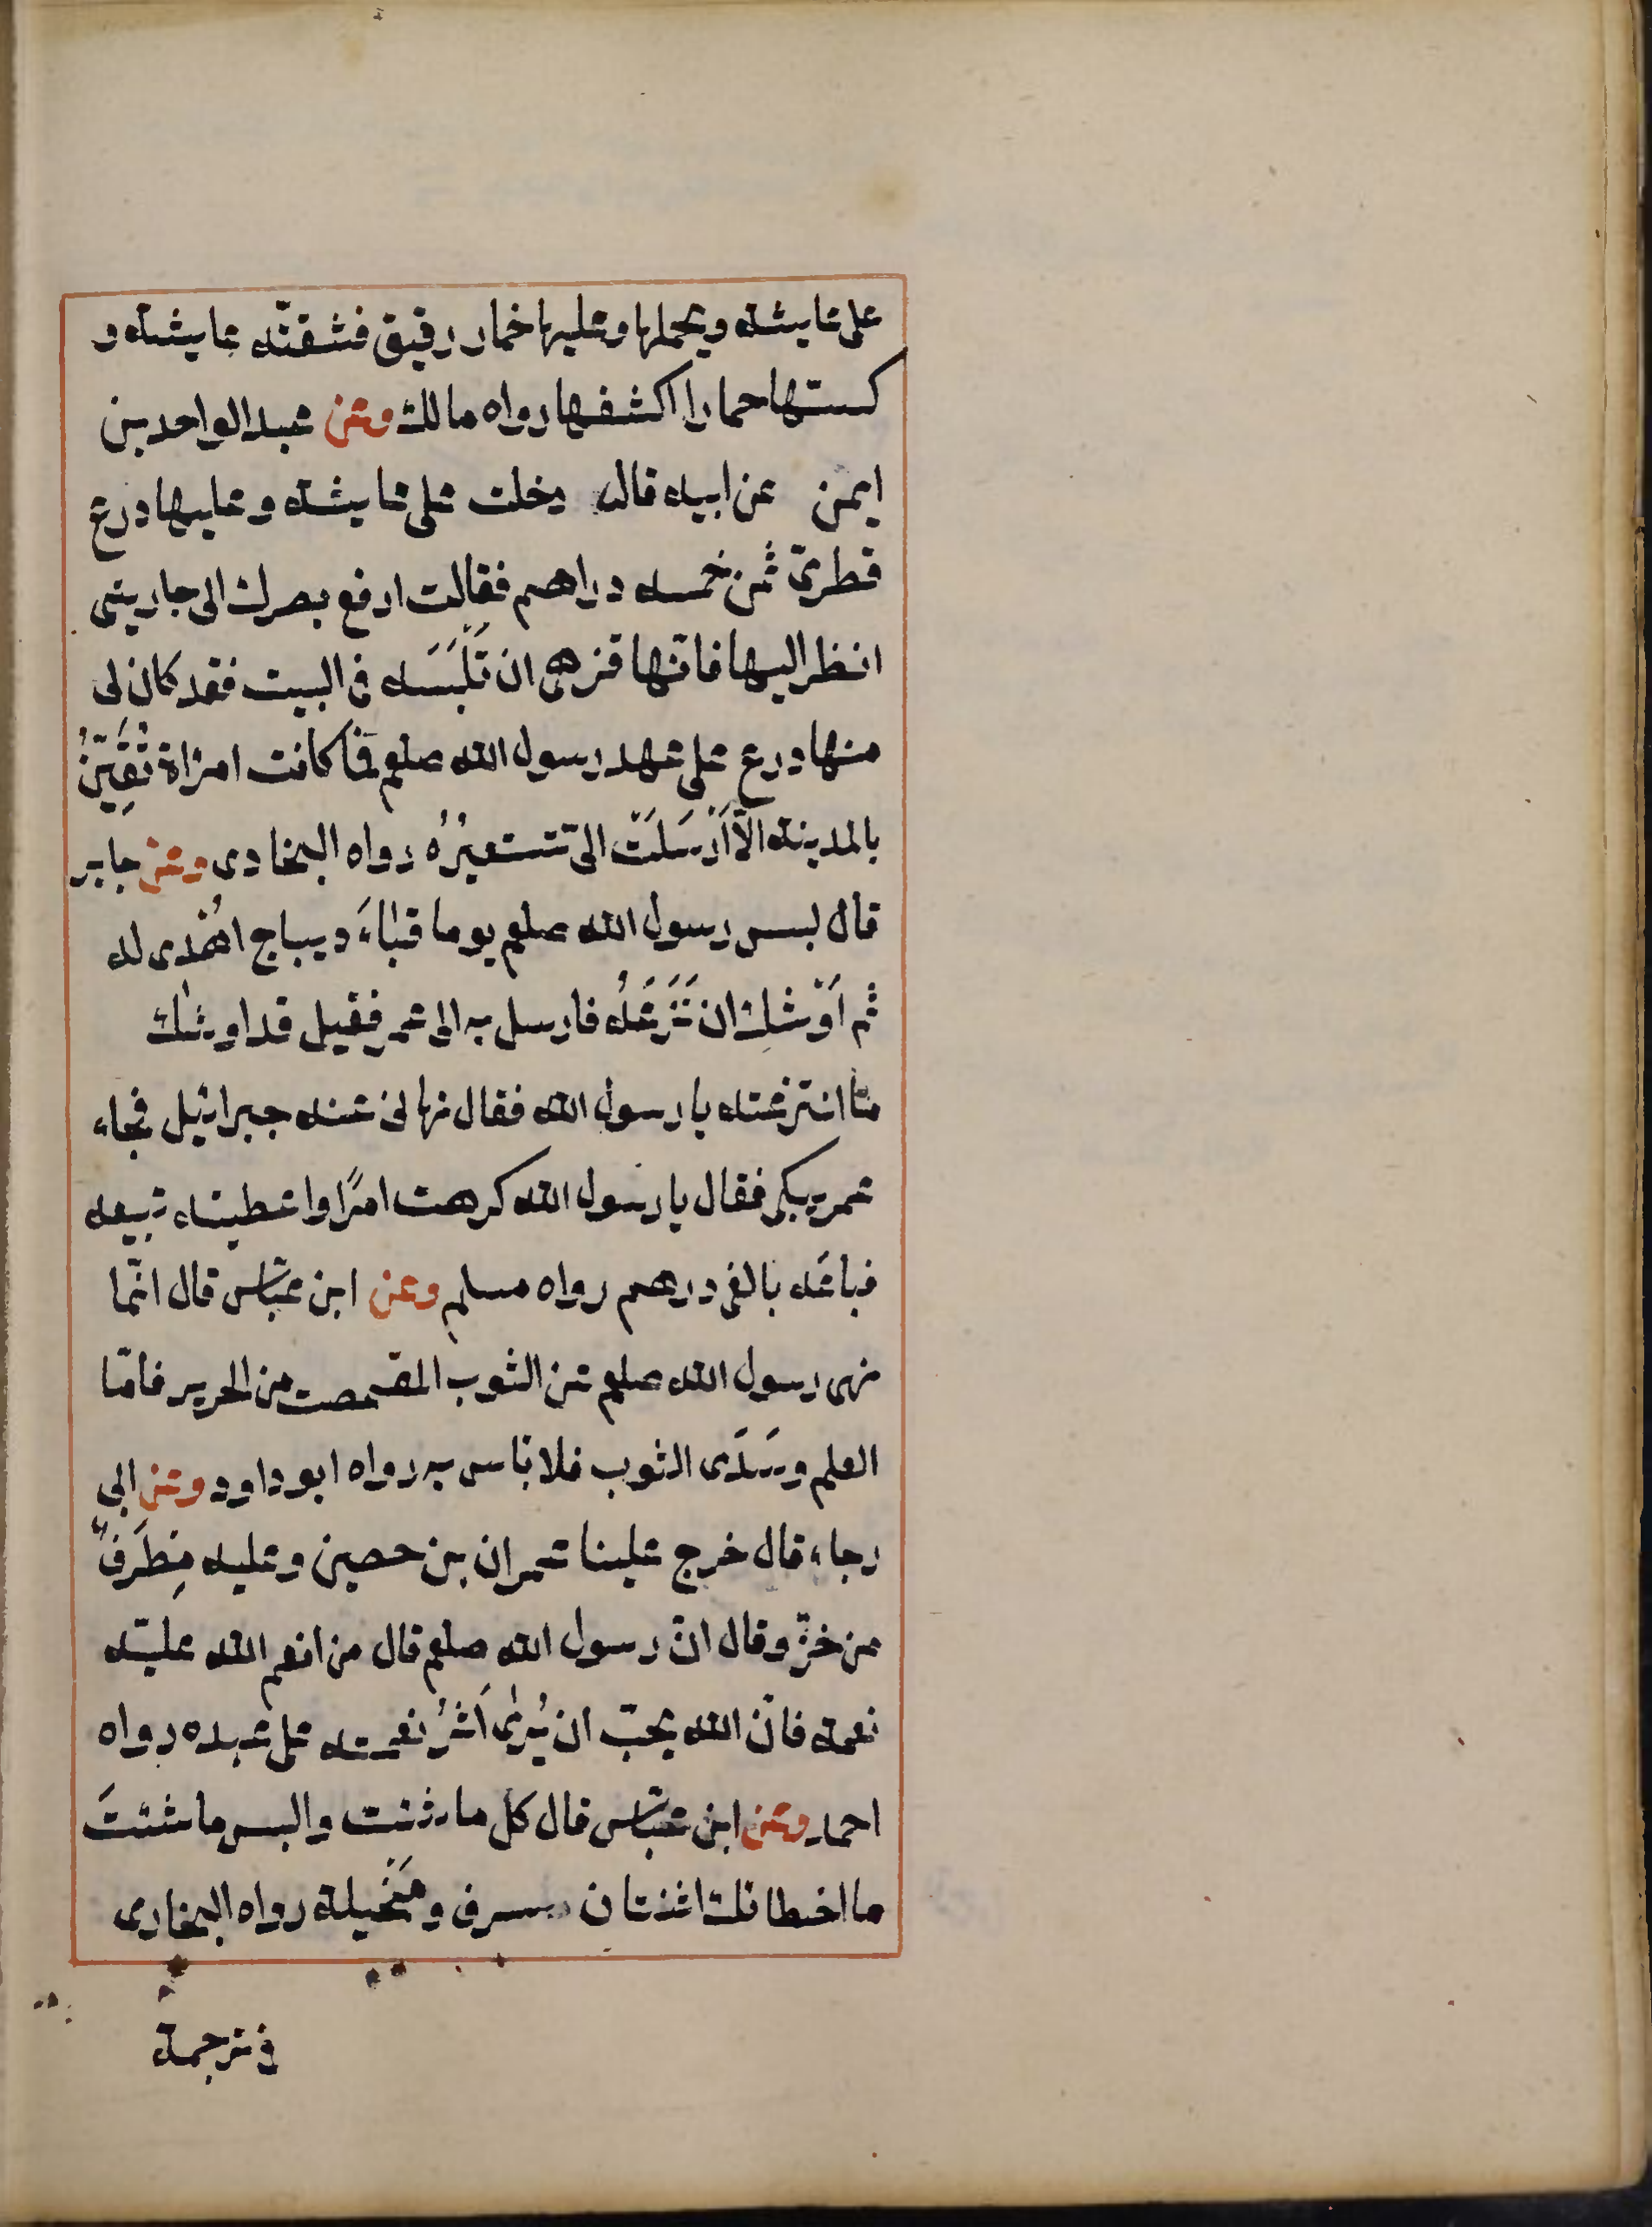 على عايشة ويحملها وعليها خمار رقيق فشقتّه عايشة و
كستها حمارا اكشفها رواه مالك وعن عبد الواحد بن
ايمن عن ابيه قال دخلت على عايشة وعليها درع
قطرىّ ثمن خمسه دراهم فقالت ارفع بصرك الى جاريتى
انظر اليها فانّها تزهى ان تَلْبَسَه فى البيت فقد كان لى
منها درع على عهد رسول الله صلعم فما كانت امراة تُقَيَّنُ
بالمدينة الّا اَرْسَلَتْ الىّ تستعيْرُه رواه البخارى وعن جابر
قال لبس رسول الله صلعم يوما قباءَ ديباج اُهْدى له
ثم اَوْشك ان نَزَعَهُ فارسل به الى عمر فقيل قد اوشك
ما انتزعته يا رسول الله فقال نهانى عنه جبرائيل فجاء
عمر يبكى فقال يا رسول الله كرهت امرًا واعطيناء تبيعه
فباعَه بالفى درهم رواه مسلم وعن ابن عبّاس قال انّما
نهى رسول الله صلعم عن الثوب المقمصت من الحرير فامّا
العلم وسَدَى الثوب فلا بأس به رواه ابو داود وعن ابى
رجاء قال خرج علينا عمران بن حصين وعليه مِطرَفٌ
من خزّ وقال انّ رسول الله صلعم قال من انعم الله عليه
نعمة فانّ الله يحبّ ان يُرىٰ اَثرُ نعمته على عبده رواه
احمد وعن ابن عبّاس قال كل ما شئت والبس ما شئتَ
ما اخطاتك اثنتان سرف ومَخيلة رواه البخارى
فى ترجمة